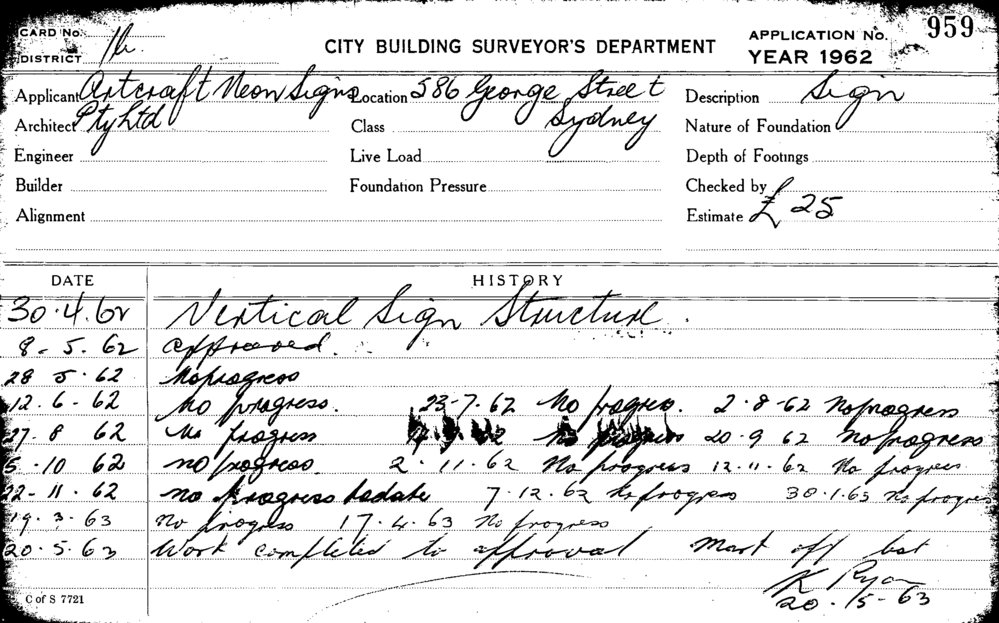 CARD No.
DISTRICT
CITY BUILDING SURVEYOR'S DEPARTMENT
APPLICATION No. 959
YEAR 1962
Applicant Artcraft Neon Signs Location 586 George Street Description Sign
Architect Pty Ltd Class Sydney Nature of Foundation
Engineer Live Load Depth of Footings
Builder Foundation Pressure Checked by
Alignment Estimate £25
DATE HISTORY
30.4.62 Vertical Sign Structure.
8-5.62 approved.
28 5.62 No progress
12.6-62 No progress. 23-7.62 No progress. 2-8-62 No progress
27.8 62 No progress No progress 20.9 62 No progress
5-10 62 no progress. 2.11.62 No progress 12.11.62 No progress
22-11.62 no progress to date 7.12.62 No progress 30.1.63 No progress
19.3.63 No progress 17.4.63 No progress
20.5.63 Work completed to approval Mark off list
K Ryan
20-5-63
C of S 7721